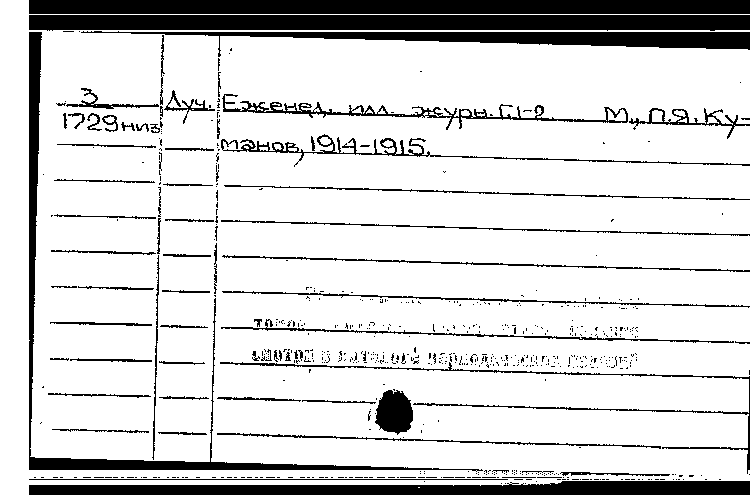 З Луч. Еженед. илл. журн. Г.1-2 М., П.Я. Ку-
1729 низ
манов, 1914-1915.
томов
смотри в каталоге периодических изданий